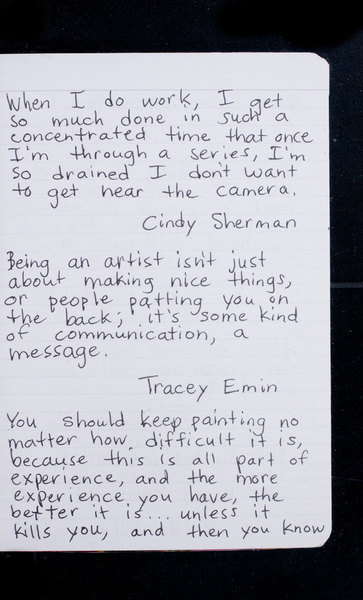 When I do work, I get
so much done in such a
concentrated time that once
I'm through a series, I'm
so drained I don't want
to get near the camera.
Cindy Sherman
Being an artist isn't just
about making nice things,
or people patting you on
the back; it's some kind
of communication, a
message.
Tracey Emin
You should keep painting no
matter how difficult it is,
because this is all part of
experience, and the more
experience you have, the
better it is... unless it
kills you, and then you know